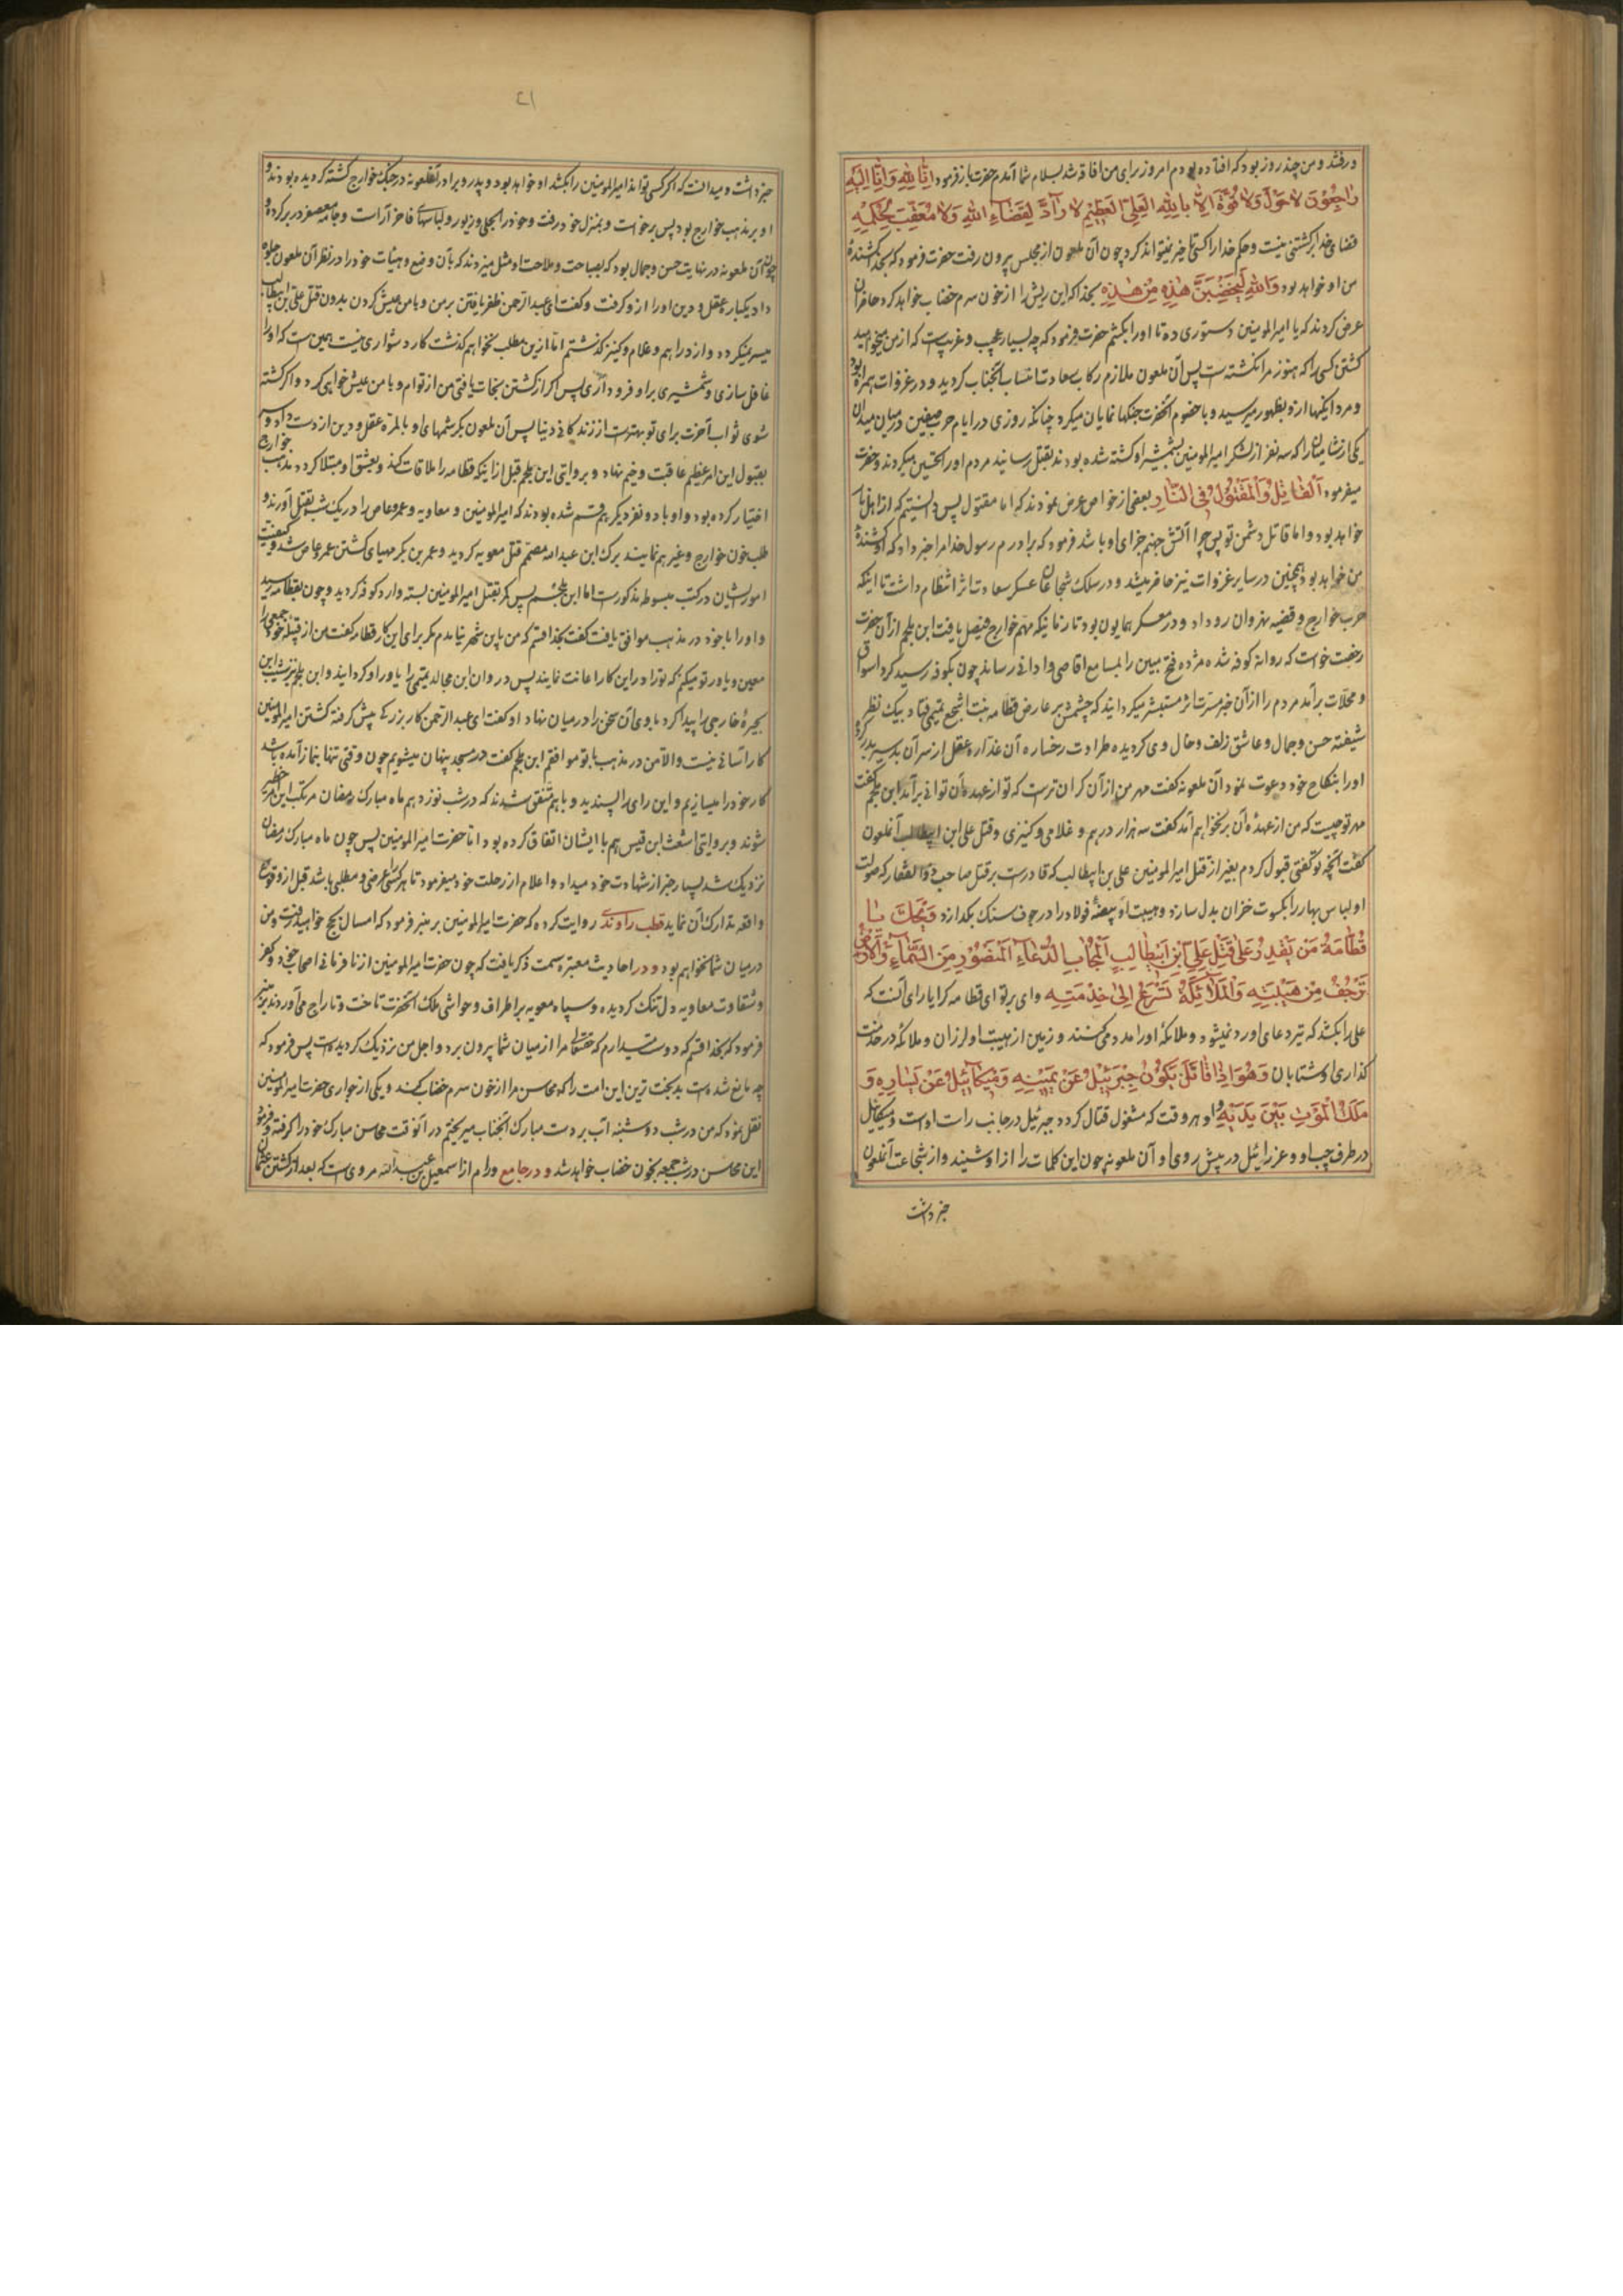 ورفتند و من چند روز بود که افتاده بودم امروز را بی من افاقه شد بسلام شما آمدم حضرت باز فرمود انا لله وانا الیه
راجعون لا حول ولا قوة الا بالله العلی العظیم لا رآد لقضاء الله ولا معقب لحکمه
قضای خدا برگشتنی نیست و حکم خدا را کسی تاخیر نمیتواند کرد چون آن ملعون از مجلس بیرون رفت حضرت فرمود که بخدا کشندهٔ
من او خواهد بود والله لیخضبن هذه من هذه بخدا که این ریش را از خون سرم خضاب خواهد کرد حاضران
عرض کردند که یا امیرالمومنین دستوری ده تا اورا بکشم حضرت فرمود که چه بسیار عجیب و غریبست که از من میخواهید
کشتن کسی را که هنوز مرا نکشته است پس آن ملعون ملازم رکاب سعادت انتساب آنجناب گردید و در غزوات همراه بود
و مردانگیها ازو بظهور میرسید و با خصوم آنحضرت جنگها نمایان میکرد چنانکه روزی در ایام حرب صفین در میان میدان
یکی از شامیان را که سه نفر از لشکر امیرالمومنین بشمشیر او کشته شده بودند بقتل رسانید مردم اورا تحسین میکردند و حضرت
میفرمود القاتل والمقتول فی النار بعضی از خواص عرض نمودند که اما مقتول پس دانستیم که از اهل نار
خواهد بود و اما قاتل دشمن تو پس چرا آتش جهنم جزای او باشد فرمود که برادرم رسول خدا مرا خبر داد که او کشندهٔ
من خواهد بود همچنین در سایر غزوات نیز حاضر میشد و در سلک شجاعان عسکر سعادت اثر انتظام داشت تا اینکه
حرب خوارج و قضیه نهروان روداد و در معسکر همایون بود تا زمانیکه مهم خوارج فیصل یافت ابن ملجم از آن حضرت
رخصت خواست که روانه کوفه شده مژده فتح مبین را بمسامع اقاصی و ادانی رساند چون بکوفه رسید گرد اسواق
و محلات برآمد مردم را از آن خبر مسرت اثر مستبشر میگردانید که چشمش بر عارض قطامه بنت اشجع تمیمی فتاد بیک نظر
شیفته حسن و جمال و عاشق زلف و خال وی گردیده طراوت رخساره آن غداره عقل از سر آن بدسیر بدر کرد
اورا بنکاح خود دعوت نمود آن ملعونه گفت مهر من از آن گران ترست که تو از عهده آن توانی برآمد ابن ملجم گفت
مهر تو چیست که من از عهده آن برنخواهم آمد گفت سه هزار درهم و غلامی و کنیزی و قتل علی ابن ابیطالب آنملعون
گفت آنچه تو گفتی قبول کردم بغیر از قتل امیرالمومنین علی بن ابیطالب که قادرست بر قتل صاحب ذوالفقار که صولت
او لباس بهار را بکسوت خزان بدل سازد و هیبت او بیضهٔ فولاد را در جوف سنگ بگدازد ویحک یا
قطامة من یقدر علی قتل علی ابن ابیطالب المجاب الدعاء المنصور من السماء والارض
ترجف من هیبته والملائکة تسرع الی خدمته وای بر تو ای قطامه کرا یارای آنست که
علی را بکشد که تیر دعای او رد نمیشود و ملائکه اورا مدد می کنند و زمین از هیبت او لرزان و ملائکه در خدمت
گذاری او شتابان وهو اذا قاتل یکون جبرئیل عن یمینه ومیکائیل عن یساره و
ملک الموت بین یدیه و او هر وقت که مشغول قتال گردد جبرئیل در جانب راست اوست و میکائیل
در طرف چپ او و عزرائیل در پیش روی او آن ملعونه چون این کلمات را از او شنید و از شجاعت آنملعون
خبر داشت
۲۱
خبر داشت و میدانست که اگر کسی تواند امیرالمومنین را بکشد او خواهد بود و پدر و برادر آنملعونه در جنگ خوارج کشته گردیده بودند و
او بر مذهب خوارج بود پس برخاست و بمنزل خود رفت و خود را بحلی و زیور و لباسهای فاخر آراست و جامه معصفر در بر کرد و
چون آن ملعونه در نهایت حسن و جمال بود که بصباحت و ملاحت او مثل میزدند که بآن وضع و هیأت خود را در نظر آن ملعون جلوه
داد یکباره عقل و دین اورا ازو گرفت و گفت ای عبدالرحمن ظفر یافتن بر من و با من عیش کردن بدون قتل علی بن ابیطالب
میسر نمیگردد و از دراهم و غلام و کنیز گذشتم اما ازین مطلب نخواهم گذشت کار دشواری نیست همین است که اورا
غافل سازی و شمشیری بر او فرود آری پس اگر از کشتن نجات یافتی من از توام و با من عیش خواهی کرد و اگر کشته
شوی ثواب آخرت برای تو بهترست از زندگانی دنیا پس آن ملعون بکرشمهای او بالمره عقل و دین از دست داد و سر
بقبول این امر عظیم عاقبت وخیم نهاد و بروایتی ابن ملجم قبل از اینکه قطامه را ملاقات کند و بعشق او مبتلا گردد مذهب خوارج
اختیار کرده بود و او با دو نفر دیگر هم قسم شده بودند که امیرالمومنین و معاویه و عمرو عاص را در یک شب بقتل آورند و
طلب خون خوارج و غیرهم نمایند برک ابن عبدالله مصمم قتل معویه گردید و عمر بن بکر مهیای کشتن عمر عاص شد و کیفیت
امور ایشان در کتب مبسوطه مذکورست اما ابن ملجم پس کمر بقتل امیرالمومنین بسته وارد کوفه گردید و چون بقطامه رسید
و اورا با خود در مذهب موافق یافت گفت بخدا قسم که من باین شهر نیامدم مگر برای این کار قطامه گفت من از قبیله خود جمعی را
معین و یاور تو میکنم که تو را در این کار اعانت نمایند پس وردان ابن مجالد تمیمی را یاور او گردانید و ابن ملجم نیز شبیب ابن
بجیرهٔ خارجی را پیدا کرد با وی آن سخن را در میان نهاد او گفت ای عبدالرحمن کار بزرگی پیش گرفته کشتن امیرالمومنین
کار آسانی نیست والا من در مذهب با تو موافقم ابن ملجم گفت در مسجد پنهان میشویم چون وقتی تنها بنماز آمده باشد
کار خود را میسازیم و این رای را پسندید و باهم متفق شدند که در شب نوزدهم ماه مبارک رمضان مرتکب این امر خطیر
شوند و بروایتی اشعث ابن قیس هم با ایشان اتفاق کرده بود اما حضرت امیرالمومنین پس چون ماه مبارک رمضان
نزدیک شد بسیار خبر از شهادت خود میداد و اعلام از رحلت خود میفرمود تا هر کسی را عرضی و مطلبی باشد قبل از وقوع
واقعه تدارک آن نماید قطب راوندی روایت کرده که حضرت امیرالمومنین بر منبر فرمود که امسال بحج خواهید رفت و من
درمیان شما نخواهم بود و در احادیث معتبره سمت ذکر یافت که چون حضرت امیرالمومنین از نافرمانی اصحاب خود و کفر
و شقاوت معاویه دل تنگ گردیده و سپاه معویه بر اطراف و حواشی ملک آنحضرت تاخت و تاراج می آوردند بر منبر
فرمود که بخدا قسم که دوست میدارم که حقتعالی مرا از میان شما بیرون برد و اجل من نزدیک گردیده است پس فرمود که
چه مانع شده است بدبخت ترین این امت را که محاسن مرا از خون سرم خضاب کند و یکی از جواری حضرت امیرالمومنین
نقل نمود که من در شب دوشنبه آب بر دست مبارک آنجناب میریختم در آنوقت محاسن مبارک خود را گرفته و فرمود
این محاسن در شب جمعه بخون خضاب خواهد شد و در جامع ورام از اسمعیل بن عبدالله مروی است که بعد از کشتن عثمان